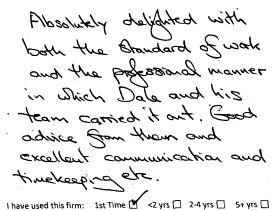 Absolutely delighted with
both the standard of work
and the professional manner
in which Dale and his
team carried it out. Good
advice from them and
excellent communication and
timekeeping etc.
I have used this firm: 1st Time ☑ <2 yrs ☐ 2-4 yrs ☐ 5+ yrs ☐